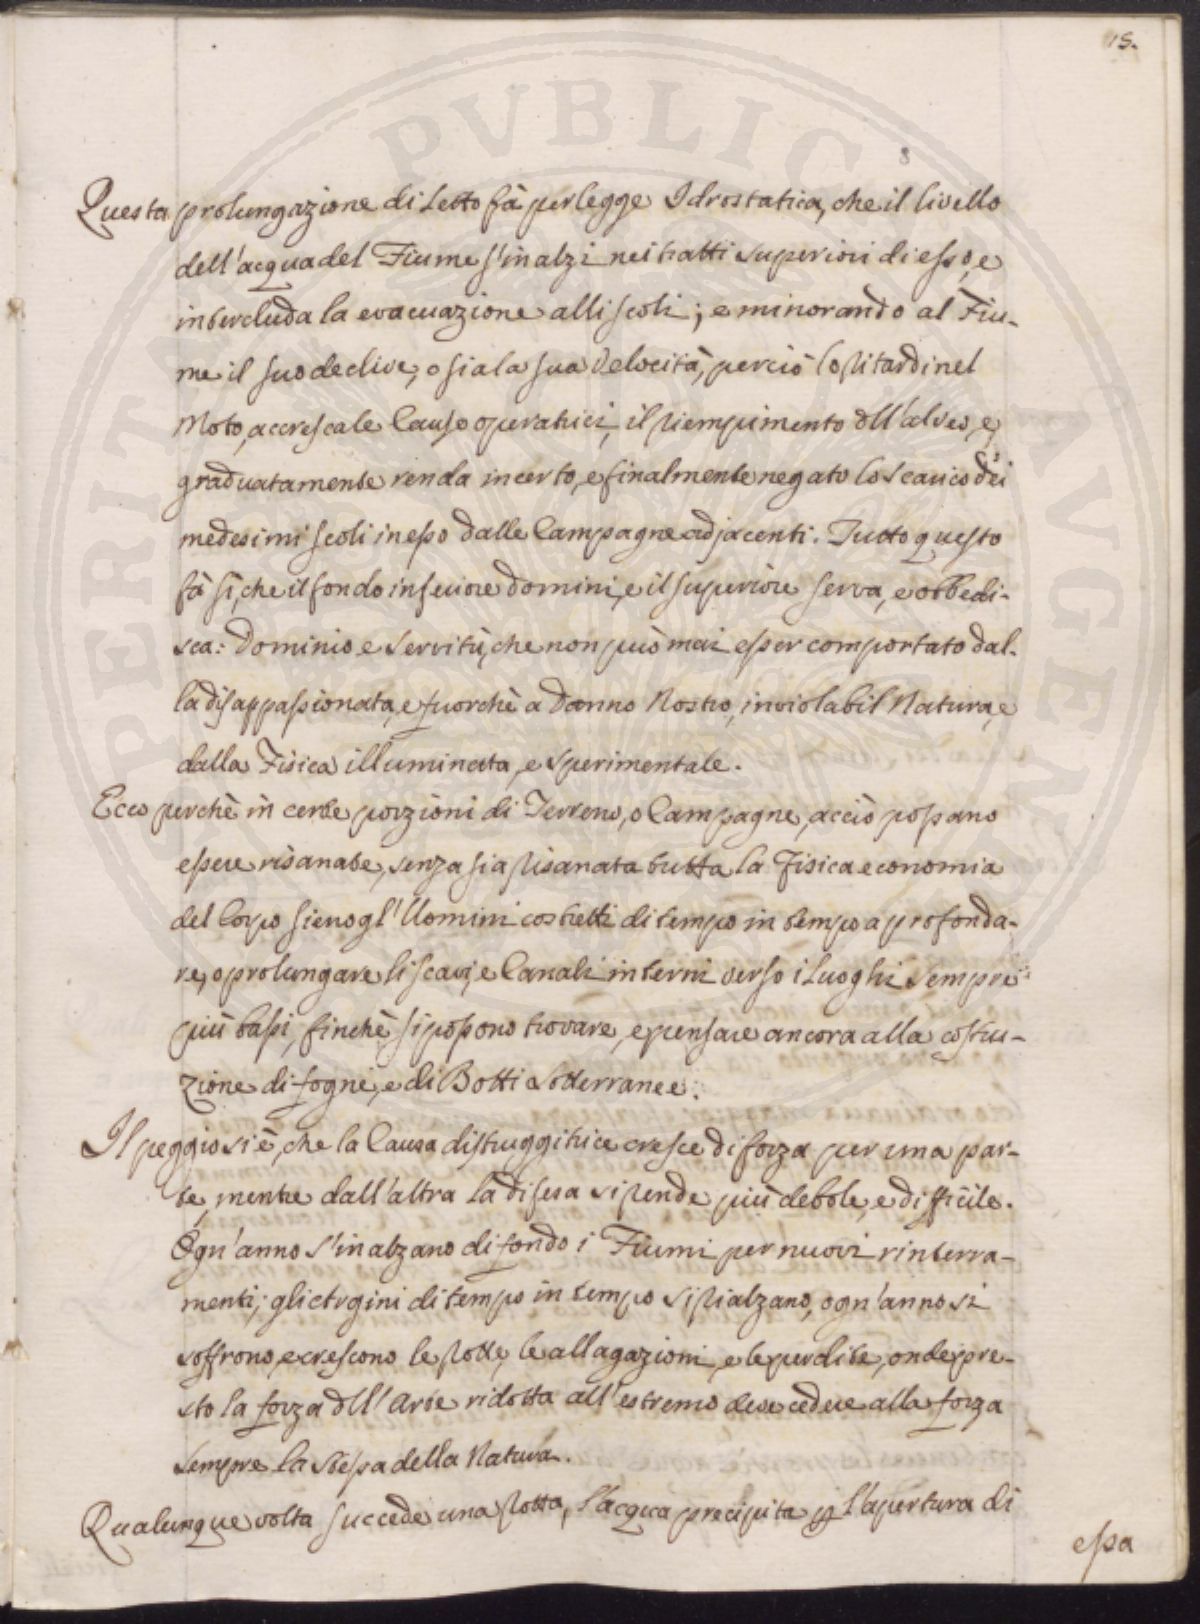 15.
8
PERITIA PVBLICAE AVGENDAE
Questa prolungazione di Letto fà per legge Idrostatica, che il livello
dell'acqua del Fiume s'inalzi nei tratti superiori di esso, e
intercluda la evacuazione alli scoli; e minorando al Fiu-
me il suo declive, o sia la sua Velocità, perciò lo ritardi nel
Moto, accresca le Cause operatrici, il riempimento dll'alveo, e
graduatamente renda incerto, e finalmente negato lo scarico dei
medesimi scoli in esso dalle Campagne adjacenti. Tutto questo
fà sì, che il fondo inferiore domini, e il superiore serva, e obbedi-
sca: Dominio e Servitù, che non può mai esser comportato dal-
la disappassionata, e fuorchè a danno Nostro, inviolabil Natura, e
dalla Fisica illuminata, e sperimentale.
Ecco perchè in certe porzioni di Terreno, o Campagne, acciò possano
essere risanate, senza sia risanata tutta la Fisica economia
del Corpo sieno gl'Uomini costretti di tempo in tempo a profonda-
re, o prolungare li scavi, e Canali interni verso i Luoghi sempre
più bassi, finchè si possono trovare, e pensare ancora alla costru-
zione di fogne, e di Botti Sotterranee.
Il peggio si è, che la Causa distruggitrice cresce di forza per una par-
te, mentre dall'altra la difesa si rende più debole, e difficile.
Ogn'anno s'inalzano di fondo i Fiumi per nuovi rinterra-
menti; gli Argini di tempo in tempo si rialzano, ogn'anno si
soffrono, e crescono le rotte, le allagazioni, e le perdite, onde pre-
sto la forza dll'Arte ridotta all'estremo deve cedere alla forza
sempre la stessa della Natura.
Qualunque volta succede una rotta, l'acqua precipita p l'apertura di
essa